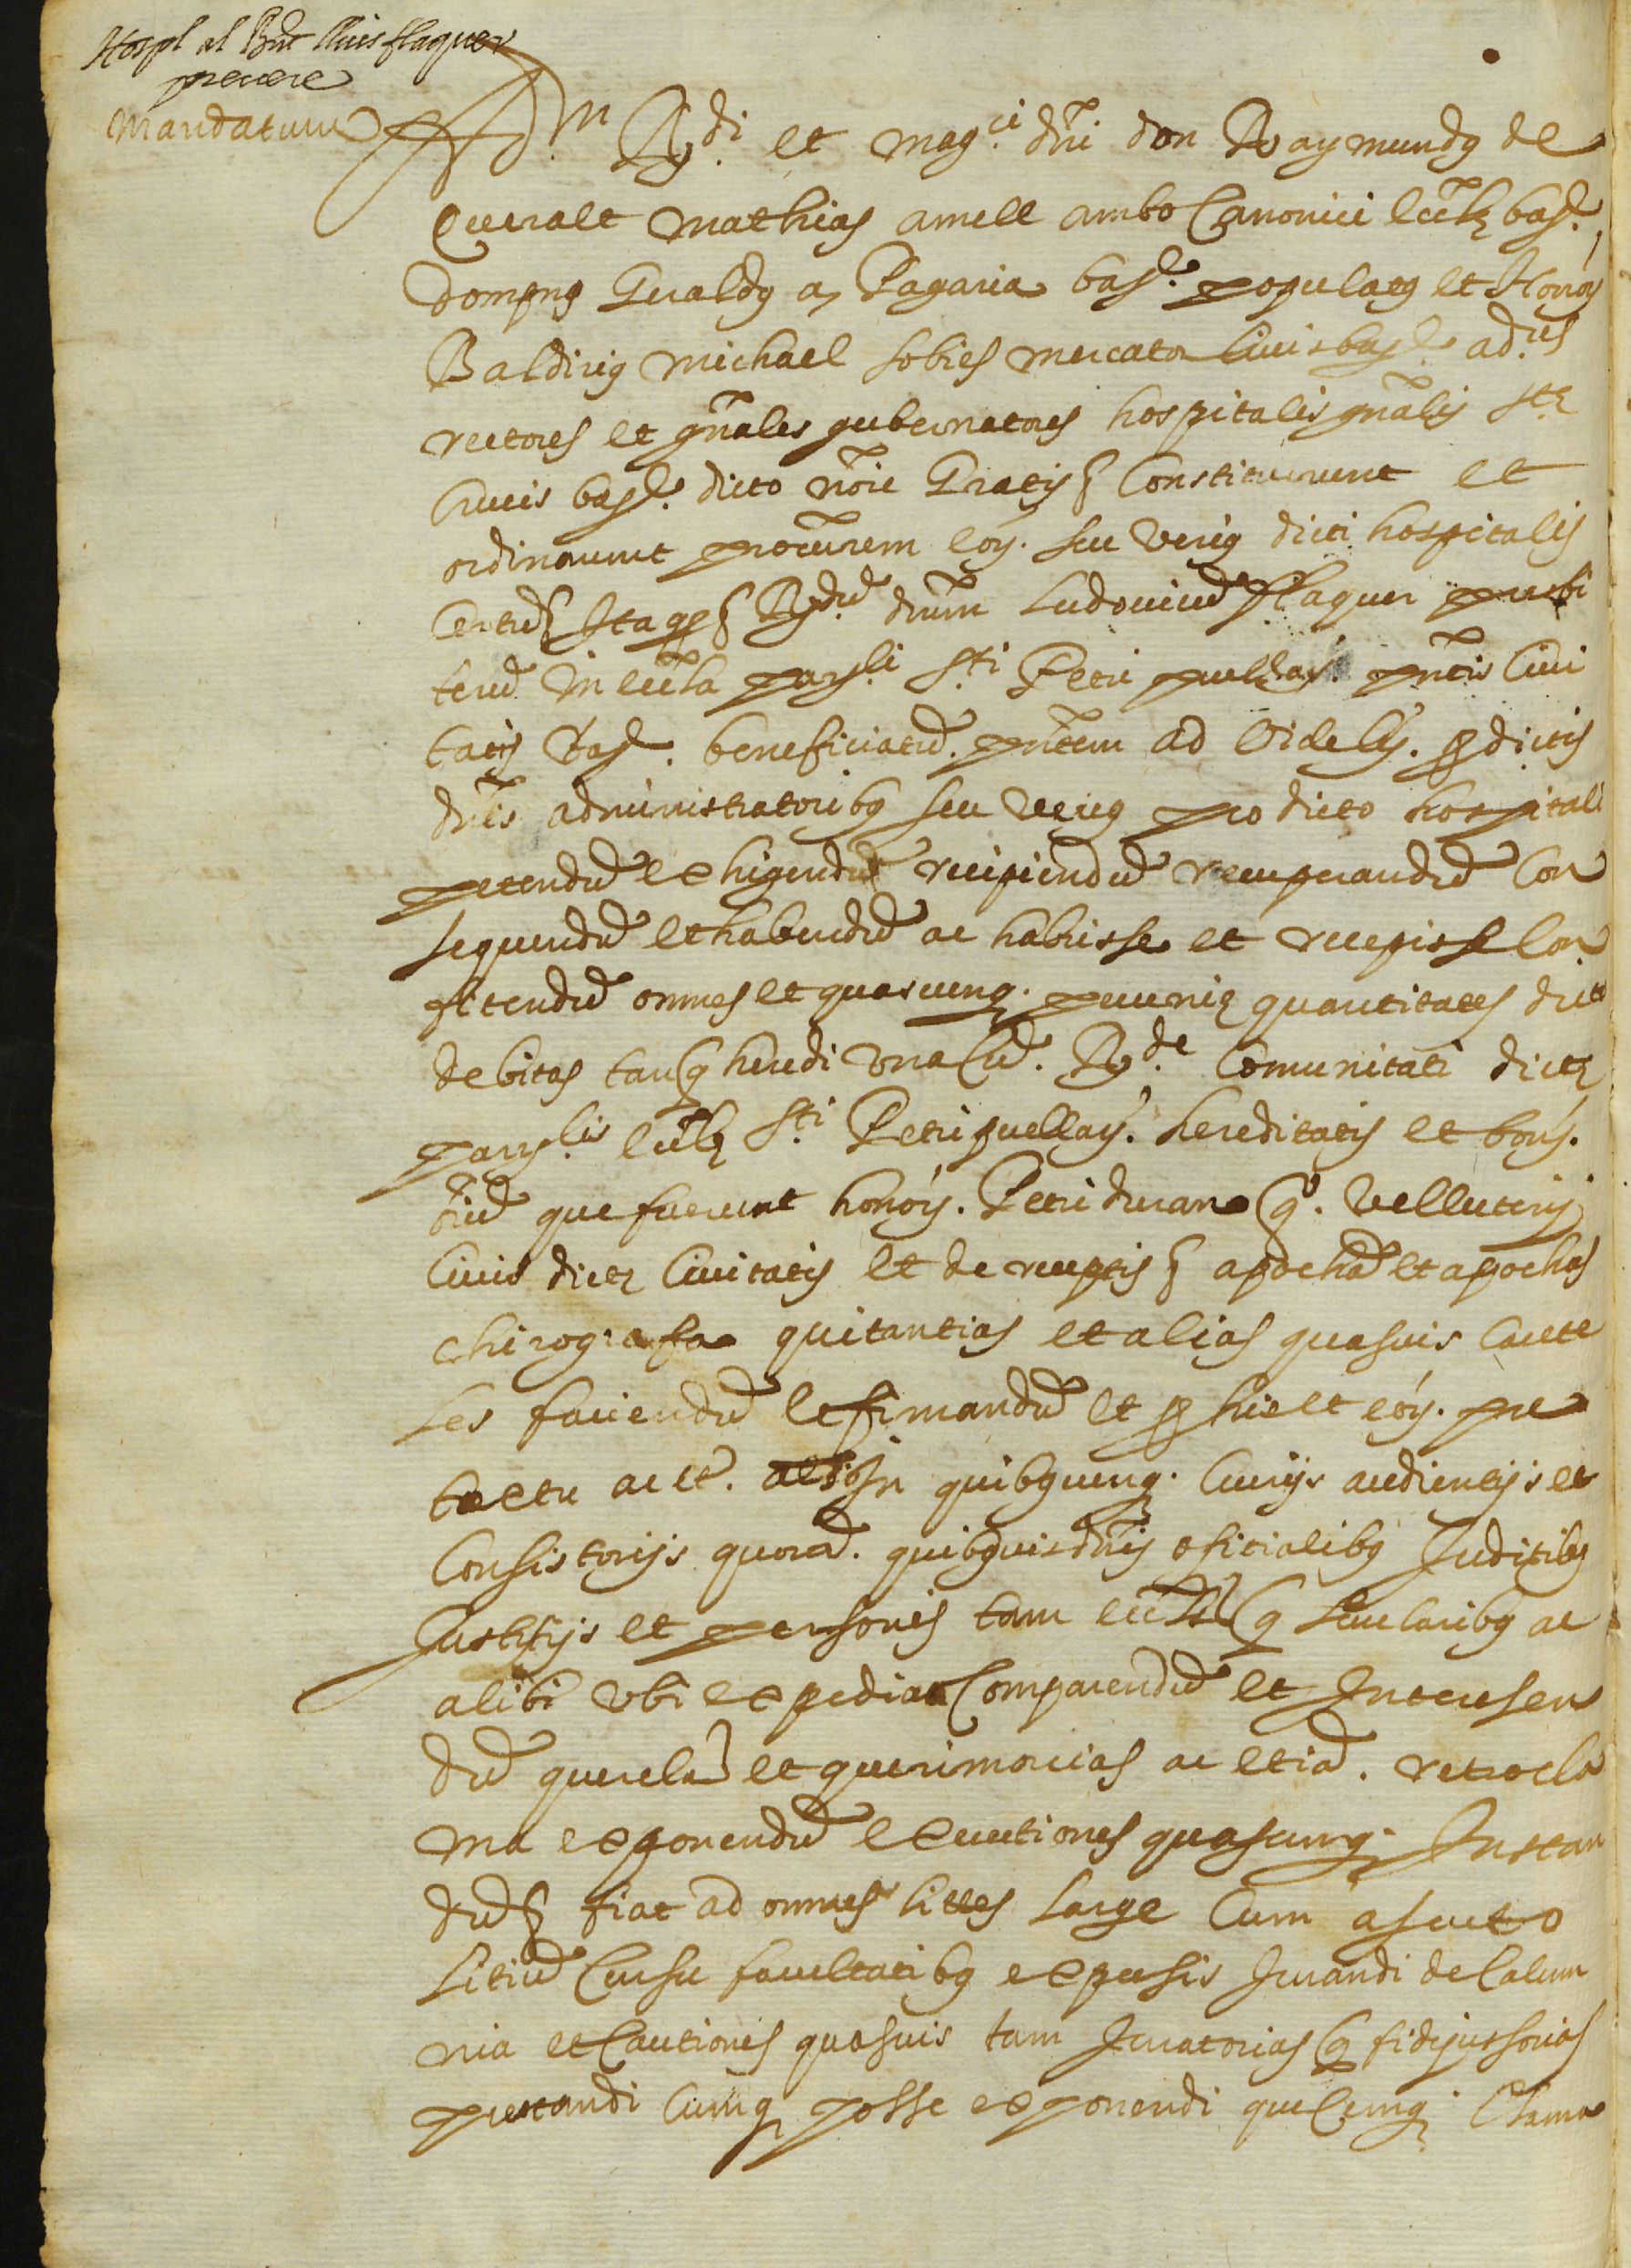 Hospl al Bnt lluis flaquer
prevere
Mandatum
Adm. Rdi. et magci. dñi don Raymundg de
Queralt Mathias amell ambo Canonici Ecclę bar.
dompng Gualdg a Pagaria bar. populatg et Honor
Baldirig Michael sobies mercator Civis bar. adres
rectores et gñales gubernatores hospitalis gñalis stę
Crucis bar. dicto nõie Gratis Constituerunt et
ordinarunt procurem eor. seu verig dicti hospitalis
Certu Ita qz Rdu. dnum Ludovicu flaquer presbi
teru In eccla parli sti Petri puellar. pntis Civi
tatis bar. beneficiatu. pntem ad videlt. p dictis
dnis administratoribg seu verig pro dicto hospitali
petendu exhigendu recipiendu recuperandu Con
sequendu et habendu ac habuisse et recepisse Con
fitendu omnes et quascunqz. pecunię quantitates dict
debitas tanqz heredi una Cu. Rde. Comunitati dictę
parlis Ecclę sti Petri puellar. hereditatis et bonor.
oiu que fuerunt honor. Petri duran q. velluterij
Civis dictę Civitatis et de receptis apocha et apochas
chirografa quitantias et alias quasvis caute
les faciendu et firmandu et p his et eor. pre
textu ac et. In quibgcunqz. Curijs audientijs et
Consistorijs quora. quibgvis dnis oficialibg Juditibg
Justitijs et personis tam eccls q secularibg ac
alibi ubi expediat Comparendu et Interesen
du querelas et querimonias ac etia. retrocla
ma exponendu executiones quascunqz Instan
du fiat ad omnes littes large Cum asueto
Litiu Cursu facultatibg expresis Jurandi de Calum
nia et Cautiones quasvis tam Juratorias q fidejussorias
prestandi Cumqz posse exponendi quecunqz Clama